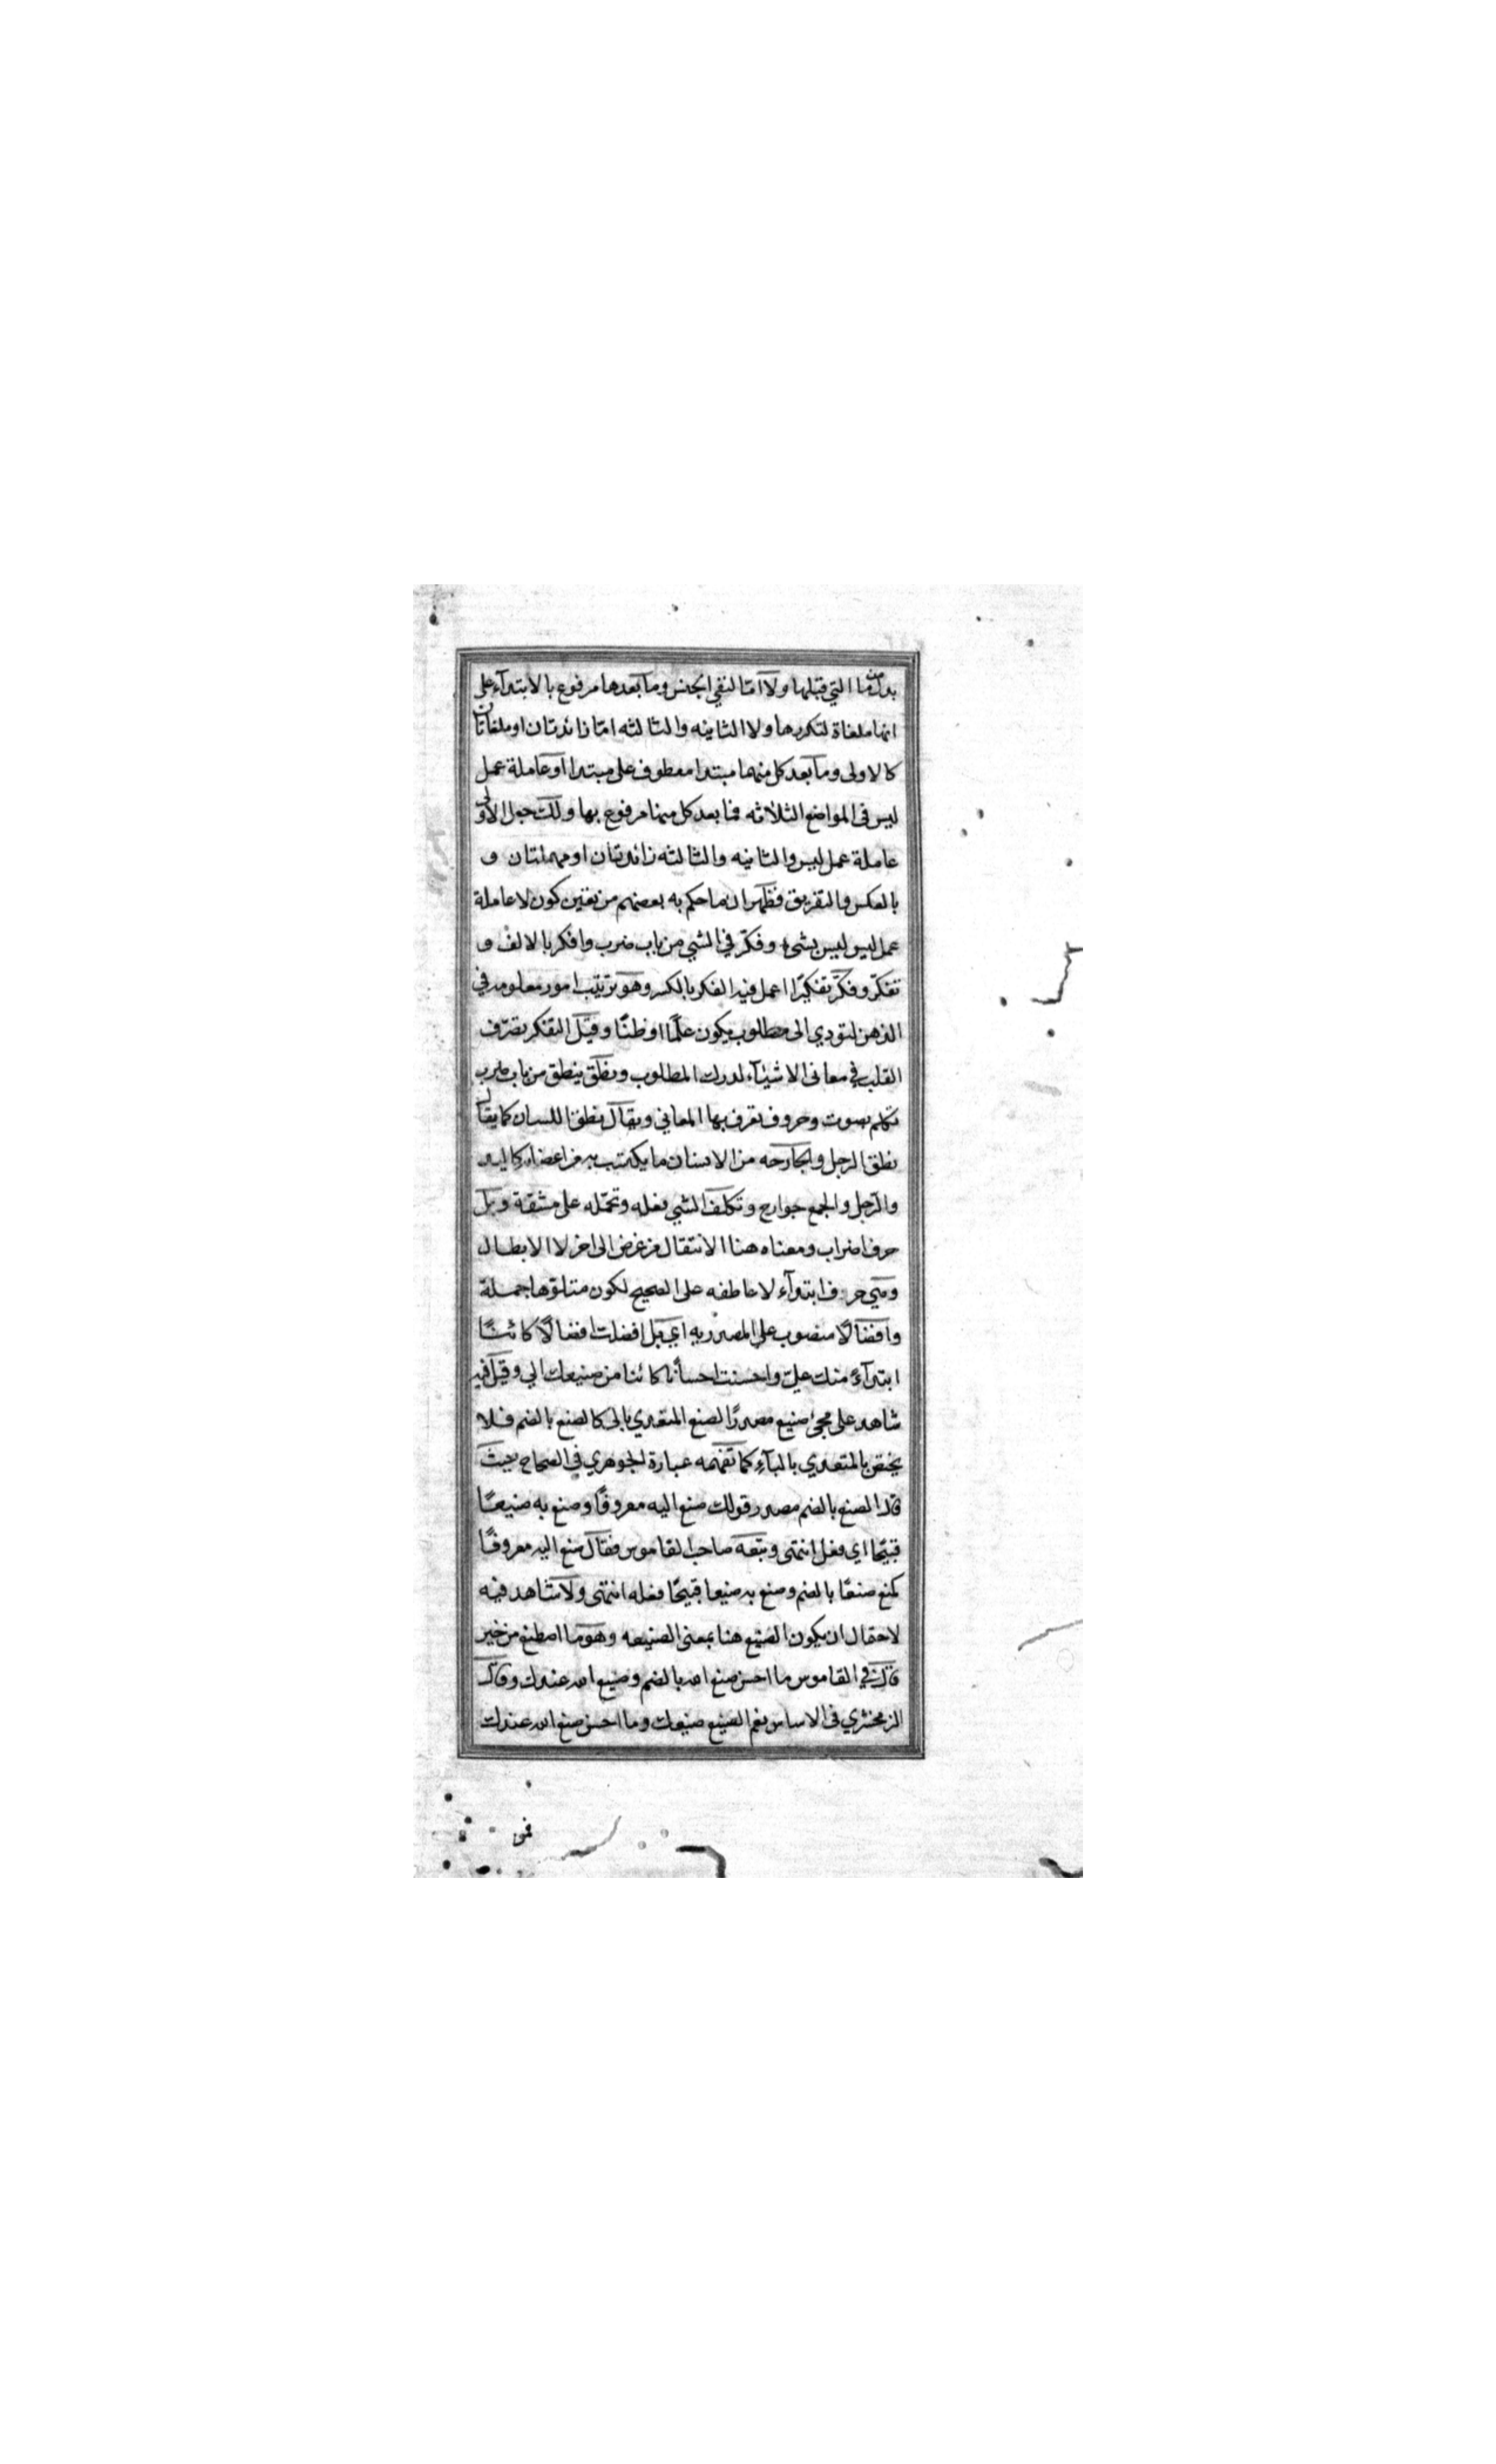 بدل من ما التي قبلها ولا امّا لنفي الجنس وما بعدها مرفوع بالابتدآء على
انها ملغاة لتكررها ولا الثانيه والثالثه امّا زائدتان او ملغاتان
كالاولى وما بعد كل منهما مبتدا معطوف على مبتدا او عاملة عمل
ليس في المواضع الثلاثه فما بعد كل منها مرفوع بها ولك جعل الاولى
عاملة عمل ليس والثانيه والثالثه زائدتان او مهملتان و
بالعكس والتفريق فظهر ان ما حكم به بعضهم من تعين كون لا عاملة
عمل ليس ليس بشئ وفكر في الشي من باب ضرب وافكر بالالف و
تفكّر وفكّر تفكيرًا اعمل فيه الفكر بالكسر وهو ترتيب امور معلومه في
الذهن لتودي الى مطلوب يكون علمًا او ظنًا وقيل التفكر تصرّف
القلب في معاني الاشيآء لدرك المطلوب ونطق ينطق من باب ضرب
تكلم بصوت وحروف تعرف بها المعاني ويقال نطق اللسان كما يقال
نطق الرجل والجارحه من الانسان ما يكتسب به من اعضائه كاليد
والرّجل والجمع جوارح وتكلف الشي فعله وتحمّله على مشقة وبل
حرف اضراب ومعناه هنا الانتقال من غرض الى اخر لا الابطال
وهي حرف ابتدآء لا عاطفه على الصحيح لكون متلوّها جملة
وافضالًا منصوب على المصدريه اي بل افضلت افضالًا كائنًا
ابتدآءً منك عليّ واحسنت احسانًا كائنا من صنيعك الي وقيل فيه
شاهد على مجئ صنيع مصدرًا لصنع المتعدي بالى كالصنع بالضم فلا
يختص بالمتعدي بالبآء كما تفهمه عبارة الجوهري في الصحاح حيث
قال الصنع بالضم مصدر قولك صنع اليه معروفًا وصنع به صنيعًا
قبيحًا اي فعل انتهى وتبعه صاحب القاموس فقال صنع اليه معروفًا
كمنع صنعًا بالضم وصنع به صنيعا قبيحًا فعله انتهى ولا شاهد فيه
لاحتمال ان يكون الصنيع هنا بمعنى الصنيعه وهو ما اصطنع من خير
قال في القاموس ما احسن صنع الله بالضم وصنيع الله عندك وقال
الزمخشري في الاساس نعم الصنيع صنيعك وما احسن صنع الله عندك